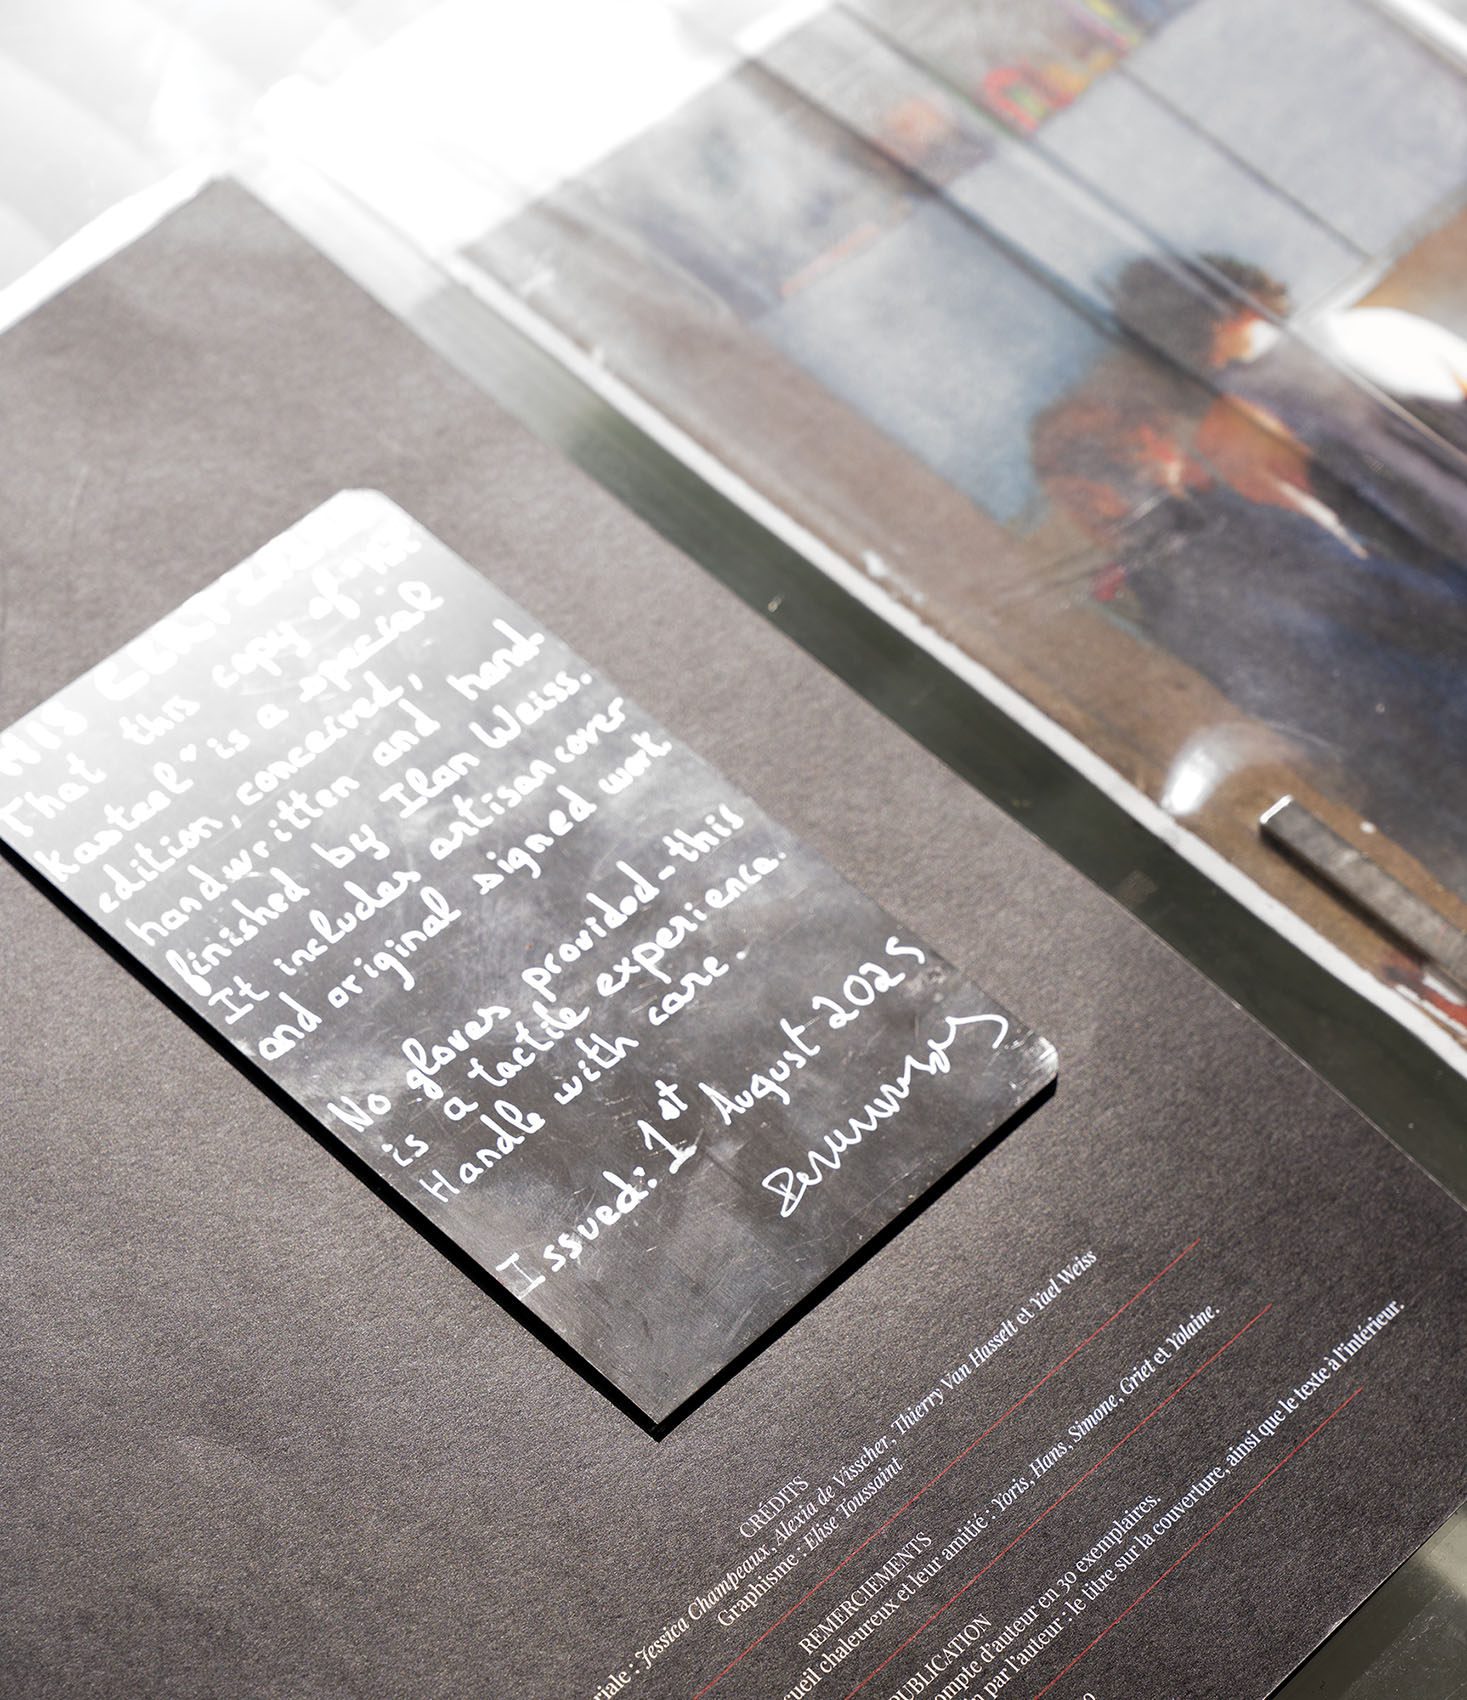 THIS CERTIFIES
That this copy of "Het
Kasteel" is a special
edition, conceived,
handwritten and hand
finished by Ilan Weiss.
It includes artisan cover
and original signed work
No gloves provided - this
is a tactile experience.
Handle with care.
Issued: 1st August 2025
CRÉDITS
riale : Jessica Champeaux, Alexia de Visscher, Thierry Van Hasselt et Yael Weiss
Graphisme : Elise Toussaint
REMERCIEMENTS
cueil chaleureux et leur amitié : Yoris, Hans, Simone, Griet et Yolaine.
PUBLICATION
ompte d'auteur en 30 exemplaires.
n par l'auteur : le titre sur la couverture, ainsi que le texte à l'intérieur.